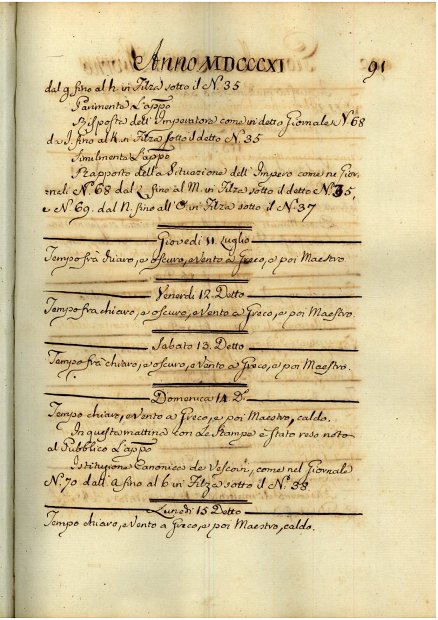 Anno MDCCCXI 91
dal g fino al h in Filza sotto il N.º 35
Parimente L'appo
Risposta dell' Imperatore come in detto Giornale N.º 68
da I. fino al K. in Filza sotto il detto N.º 35
Similmente L'appo
Rapporto della Situazione dell' Impero come ne Gior,
nali N.º 68 dal L fino al M. in Filza sotto il detto N.º 35,
e N.º 69. dal N. fino all' O. in Filza sotto il N.º 37
Giovedì 11 Luglio
Tempo frà chiaro, e oscuro, e Vento a Greco, e poi Maestro
Venerdì 12 Detto
Tempo fra chiaro, e oscuro, e Vento a Greco, e poi Maestro.
Sabato 13. Detto
Tempo frà chiaro, e oscuro, e Vento a Greco, e poi Maestro.
Domenica 14 D.º
Tempo chiaro, e Vento a Greco, e poi Maestro, caldo.
In questa mattina con Le Stampe è stato reso noto
al Pubblico L'appo
Istituzione Canonica de Vescovi, come nel Giornale
N.º 70 dall' a fino al b in Filza sotto il N.º 38
Lunedì 15 Detto
Tempo chiaro, e Vento a Greco, e poi Maestro, caldo.